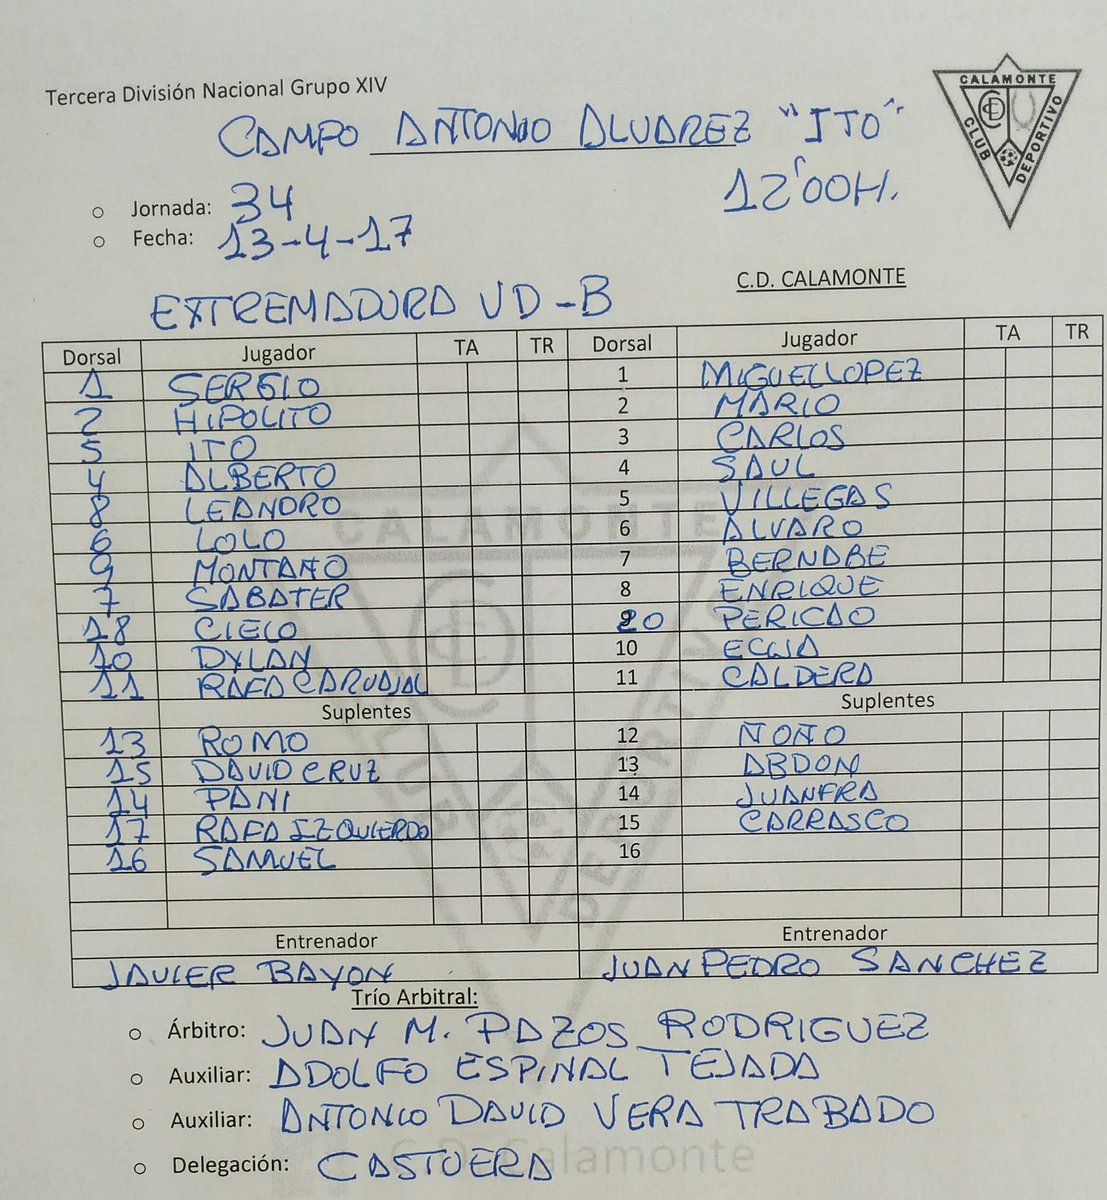 Tercera División Nacional Grupo XIV
CALAMONTE
CLUB DEPORTIVO
CAMPO ANTONIO ALVAREZ "ITO"
12'00H.
Jornada: 34
Fecha: 13-4-17
C.D. CALAMONTE
EXTREMADURA UD-B
Dorsal Jugador TA TR Dorsal Jugador TA TR
1 SERGIO 1 MIGUEL LOPEZ
2 HIPOLITO 2 MARIO
5 ITO 3 CARLOS
4 ALBERTO 4 SAUL
8 LEANDRO 5 VILLEGAS
6 LOLO 6 ALVARO
9 MONTAÑO 7 BERNABE
7 SABATER 8 ENRIQUE
18 CIELO 20 PERICAO
10 DYLAN 10 EGUA
11 RAFA CARVAJAL 11 CALDERA
Suplentes Suplentes
13 ROMO 12 ÑOÑO
15 DAVID CRUZ 13 ABDON
14 PANI 14 JUANFRA
17 RAFA IZQUIERDO 15 CARRASCO
16 SAMUEL 16
Entrenador Entrenador
JAVIER BAYON JUAN PEDRO SANCHEZ
Trío Arbitral:
Árbitro: JUAN M. PAZOS RODRIGUEZ
Auxiliar: ADOLFO ESPINAL TEJADA
Auxiliar: ANTONIO DAVID VERA TRABADO
Delegación: CASTUERA
C.D. Calamonte